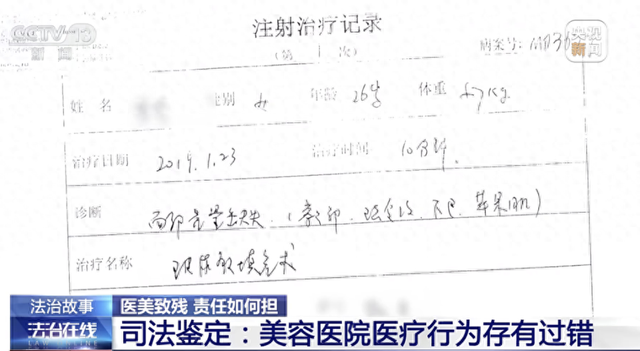 CCTV-13
新闻
央视新闻
注射治疗记录
(第 一 次)
病案号:
姓 名 性别 女 年龄 26岁 体重 57kg
治疗日期 2019.1.23 治疗时间 10分钟
诊断 面部 苹果肌)
治疗名称 玻尿酸填充术
法治故事 医美致残 责任如何担
法治在线 司法鉴定:美容医院医疗行为存有过错